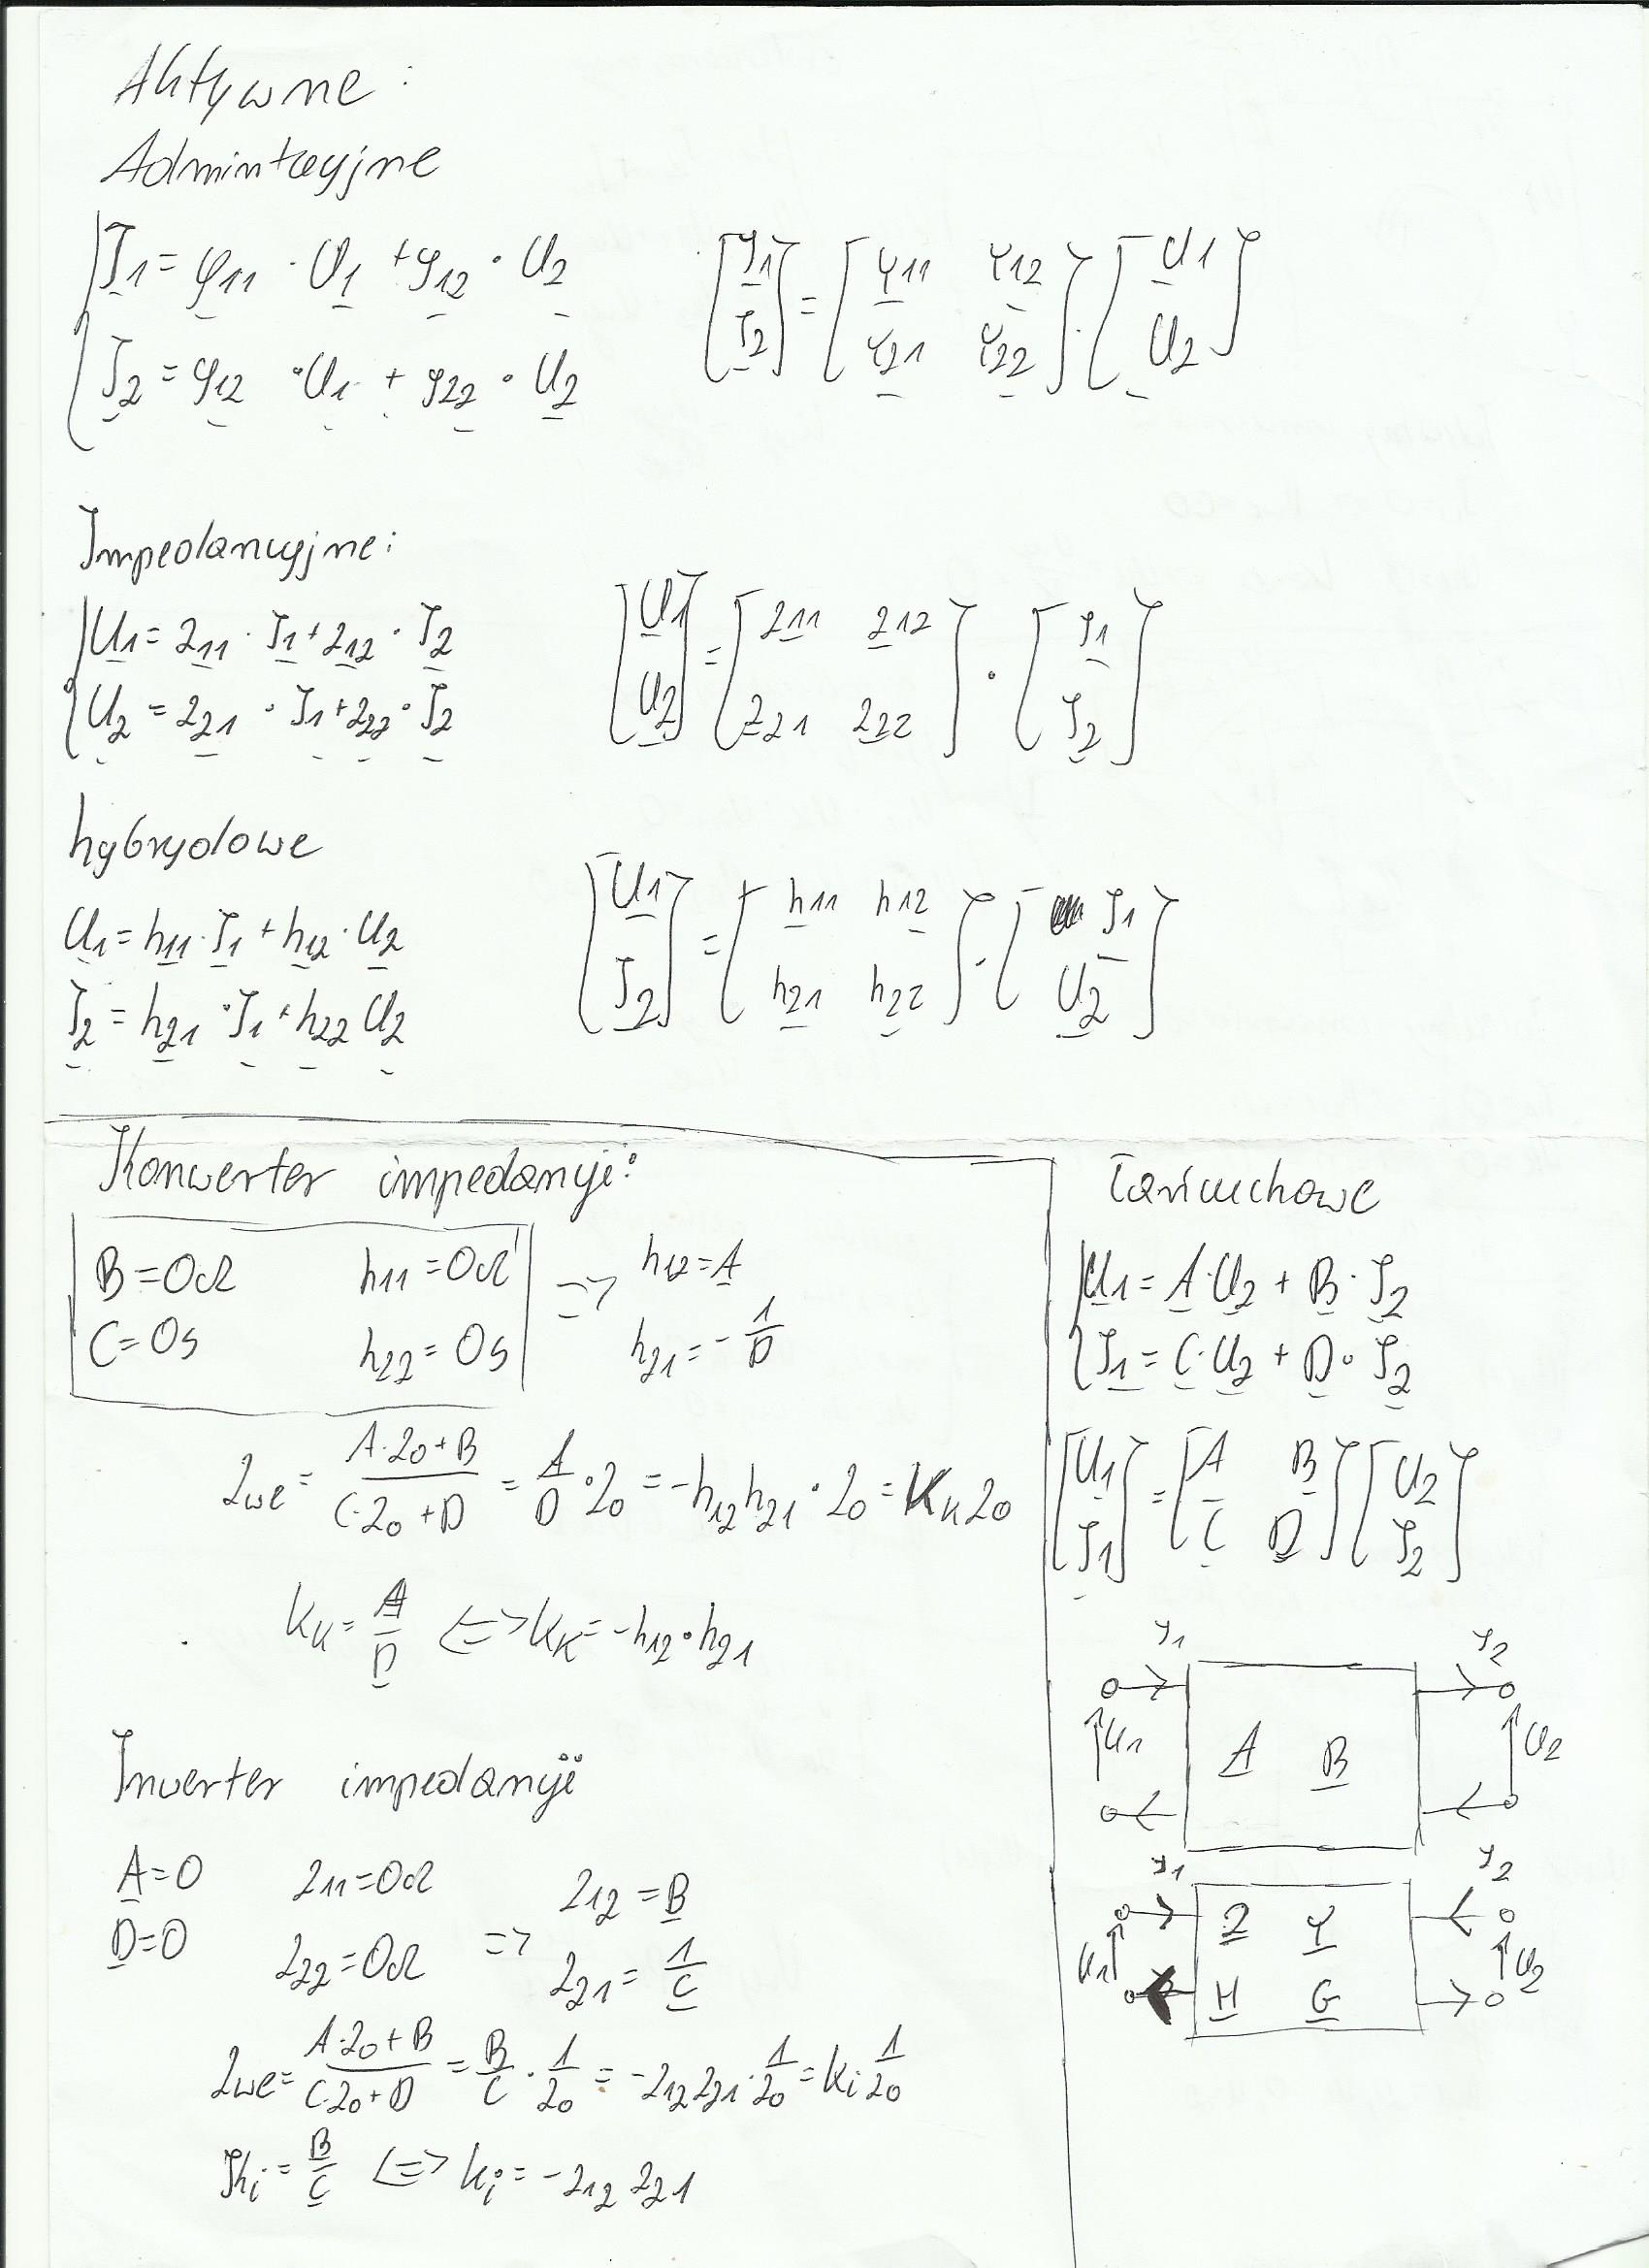 Aktywne:
Admintacyjne
I1 = y11 · U1 + y12 · U2
I2 = y12 · U1 + y22 · U2
[I1 I2] = [Y11 Y12 Y21 Y22] · [U1 U2]
Impedancyjne:
U1 = Z11 · I1 + Z12 · I2
U2 = Z21 · I1 + Z22 · I2
[U1 U2] = [Z11 Z12 Z21 Z22] · [I1 I2]
hybrydowe
U1 = h11 · I1 + h12 · U2
I2 = h21 · I1 + h22 U2
[U1 I2] = [h11 h12 h21 h22] · [I1 U2]
Konwerter impedancji:
B = 0Ω h11 = 0Ω => h12 = A
C = 0s h22 = 0s h21 = - 1/D
Zwe = (A·Z0 + B)/(C·Z0 + D) = A/D · Z0 = -h12 h21 · Z0 = Kk Z0
kk = A/D <=> kk = -h12 · h21
Inverter impedancji
A = 0 Z11 = 0Ω Z12 = B
D = 0 Z22 = 0Ω => Z21 = 1/C
Zwe = (A·Z0 + B)/(C·Z0 + D) = B/C · 1/Z0 = -Z12 Z21 · 1/Z0 = Ki 1/Z0
ki = B/C <=> ki = -Z12 Z21
Łańcuchowe
U1 = A·U2 + B·I2
I1 = C·U2 + D·I2
[U1 I1] = [A B C D] [U2 I2]
I1 I2
U1 A B U2
I1 I2
Z Y
U1 U2
H G